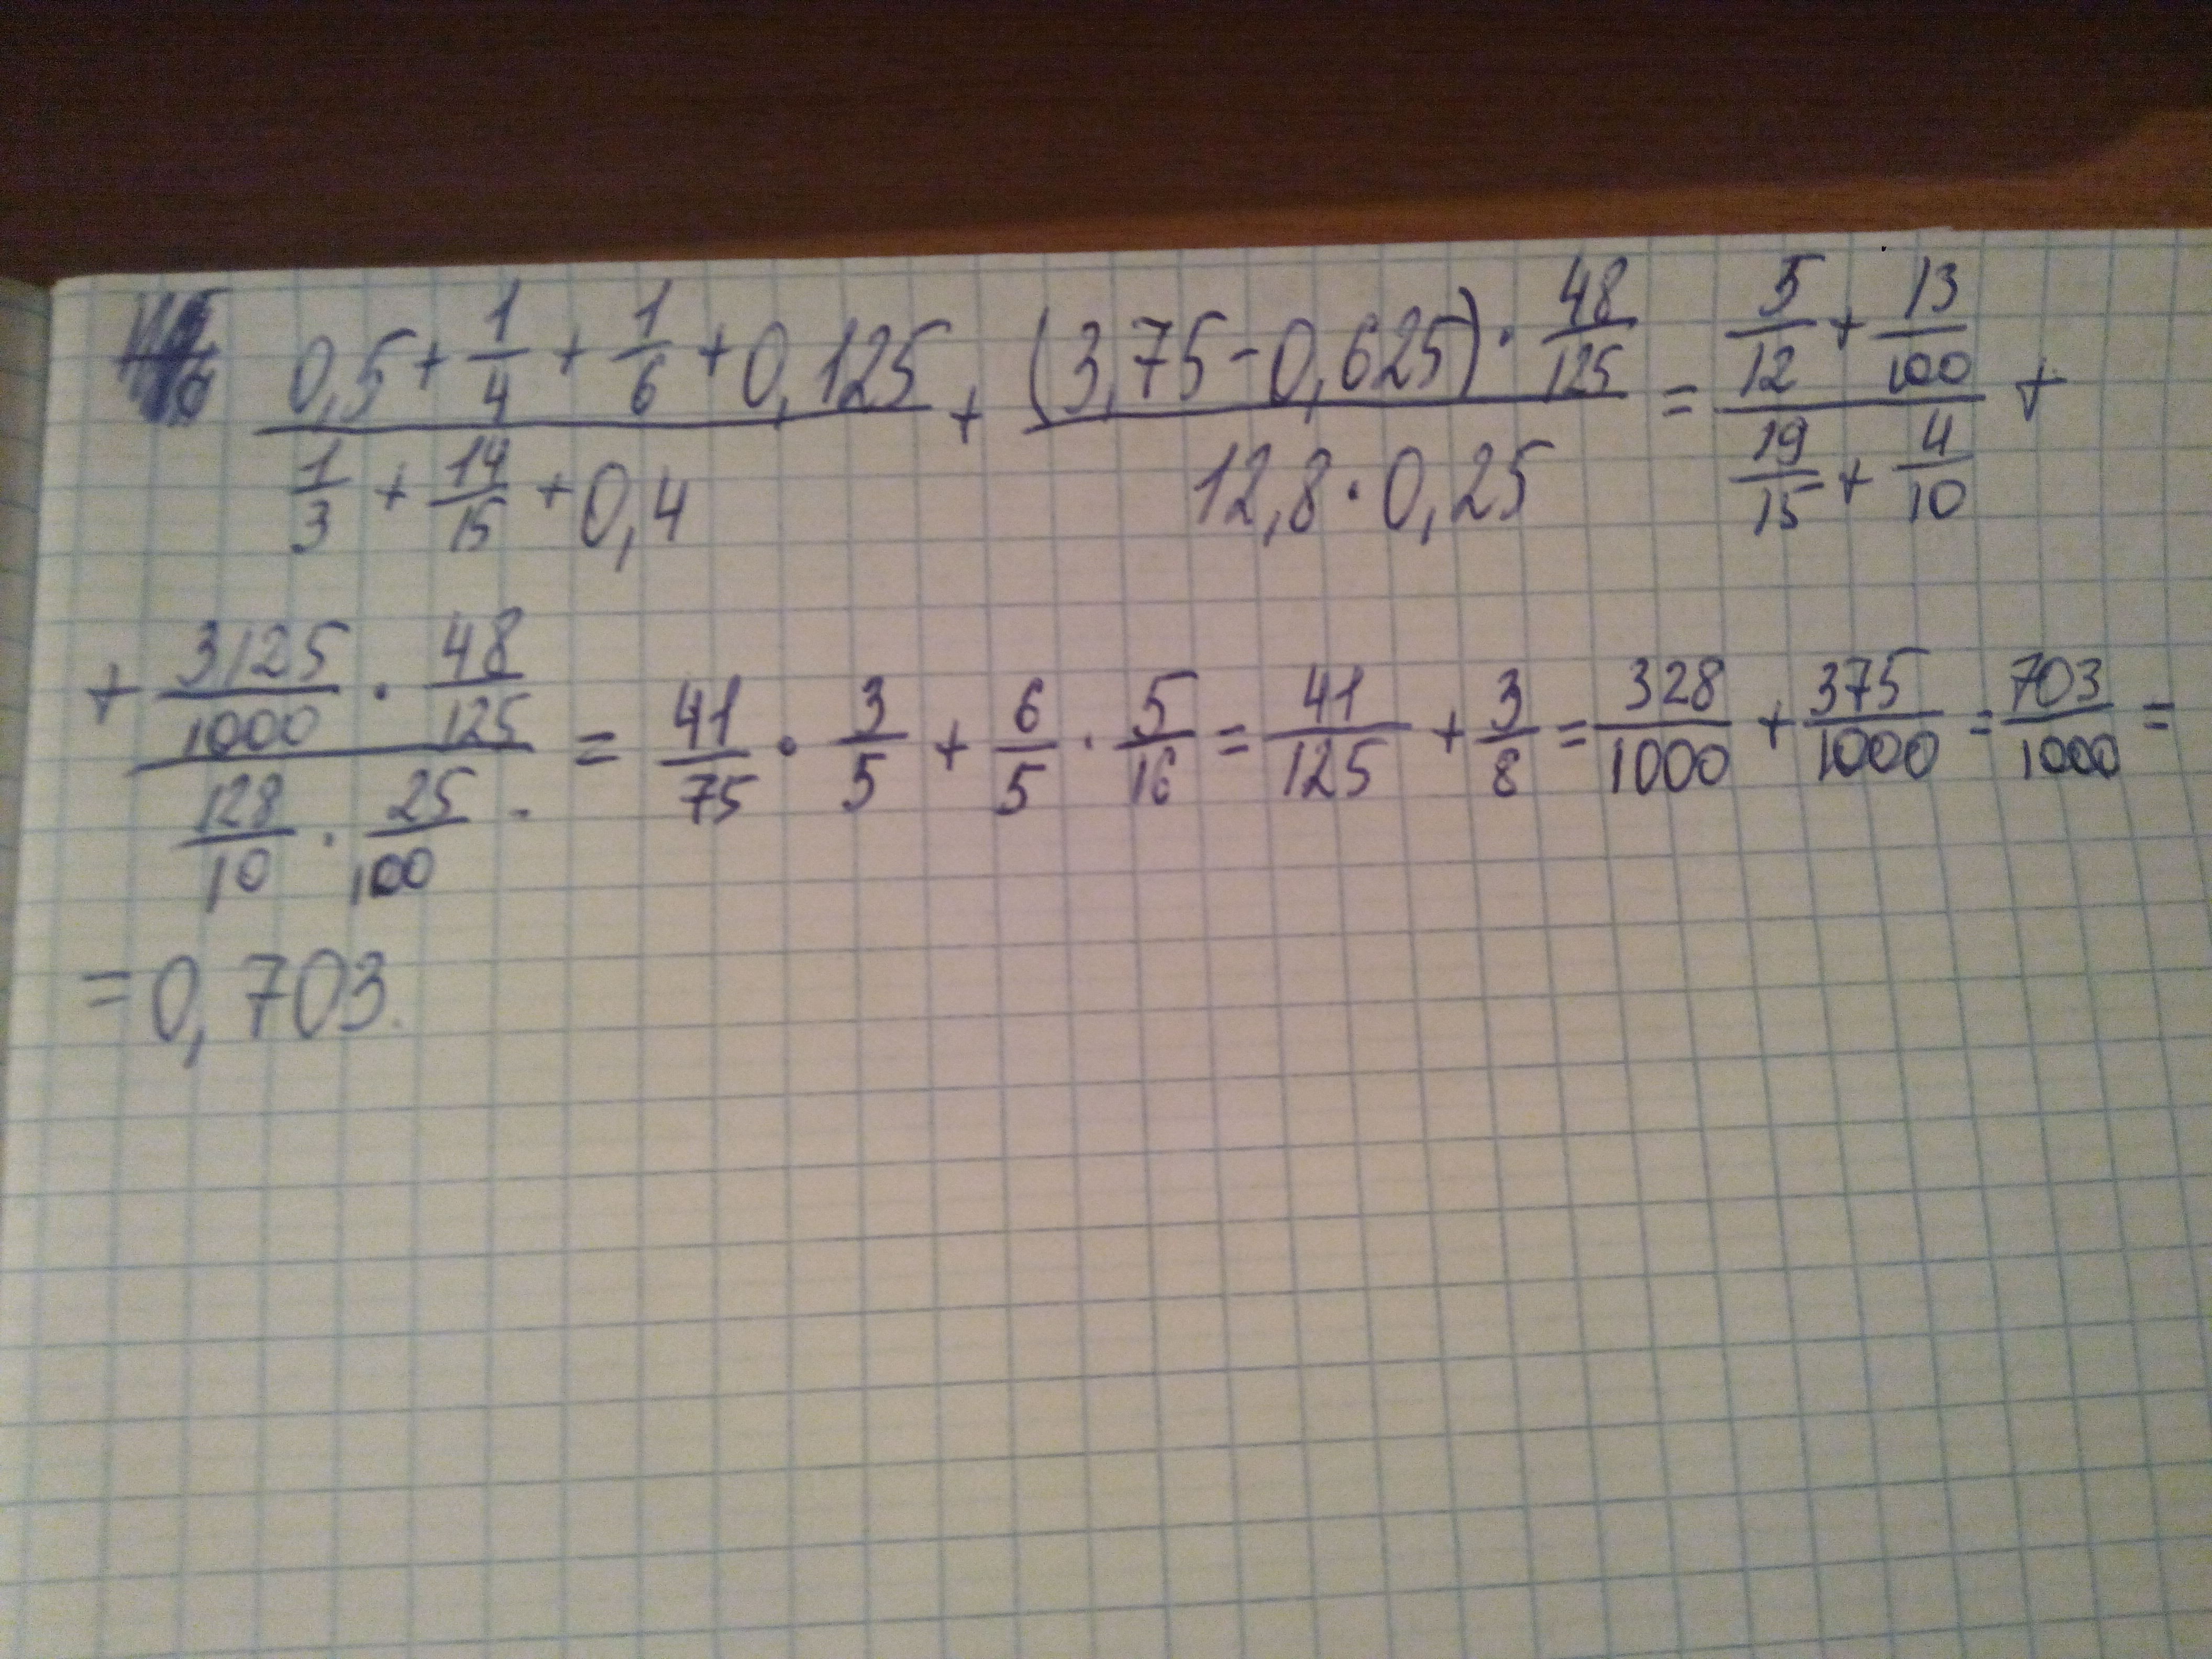 (0,5 + 1/4 + 1/6 + 0,125)/(1/3 + 14/15 + 0,4) + ((3,75 - 0,625) · 48/125)/(12,8 · 0,25) = (5/12 + 13/100)/(19/15 + 4/10) +
+ (3125/1000 · 48/125)/(128/10 · 25/100) = 41/75 · 3/5 + 6/5 · 5/16 = 41/125 + 3/8 = 328/1000 + 375/1000 = 703/1000 =
= 0,703.